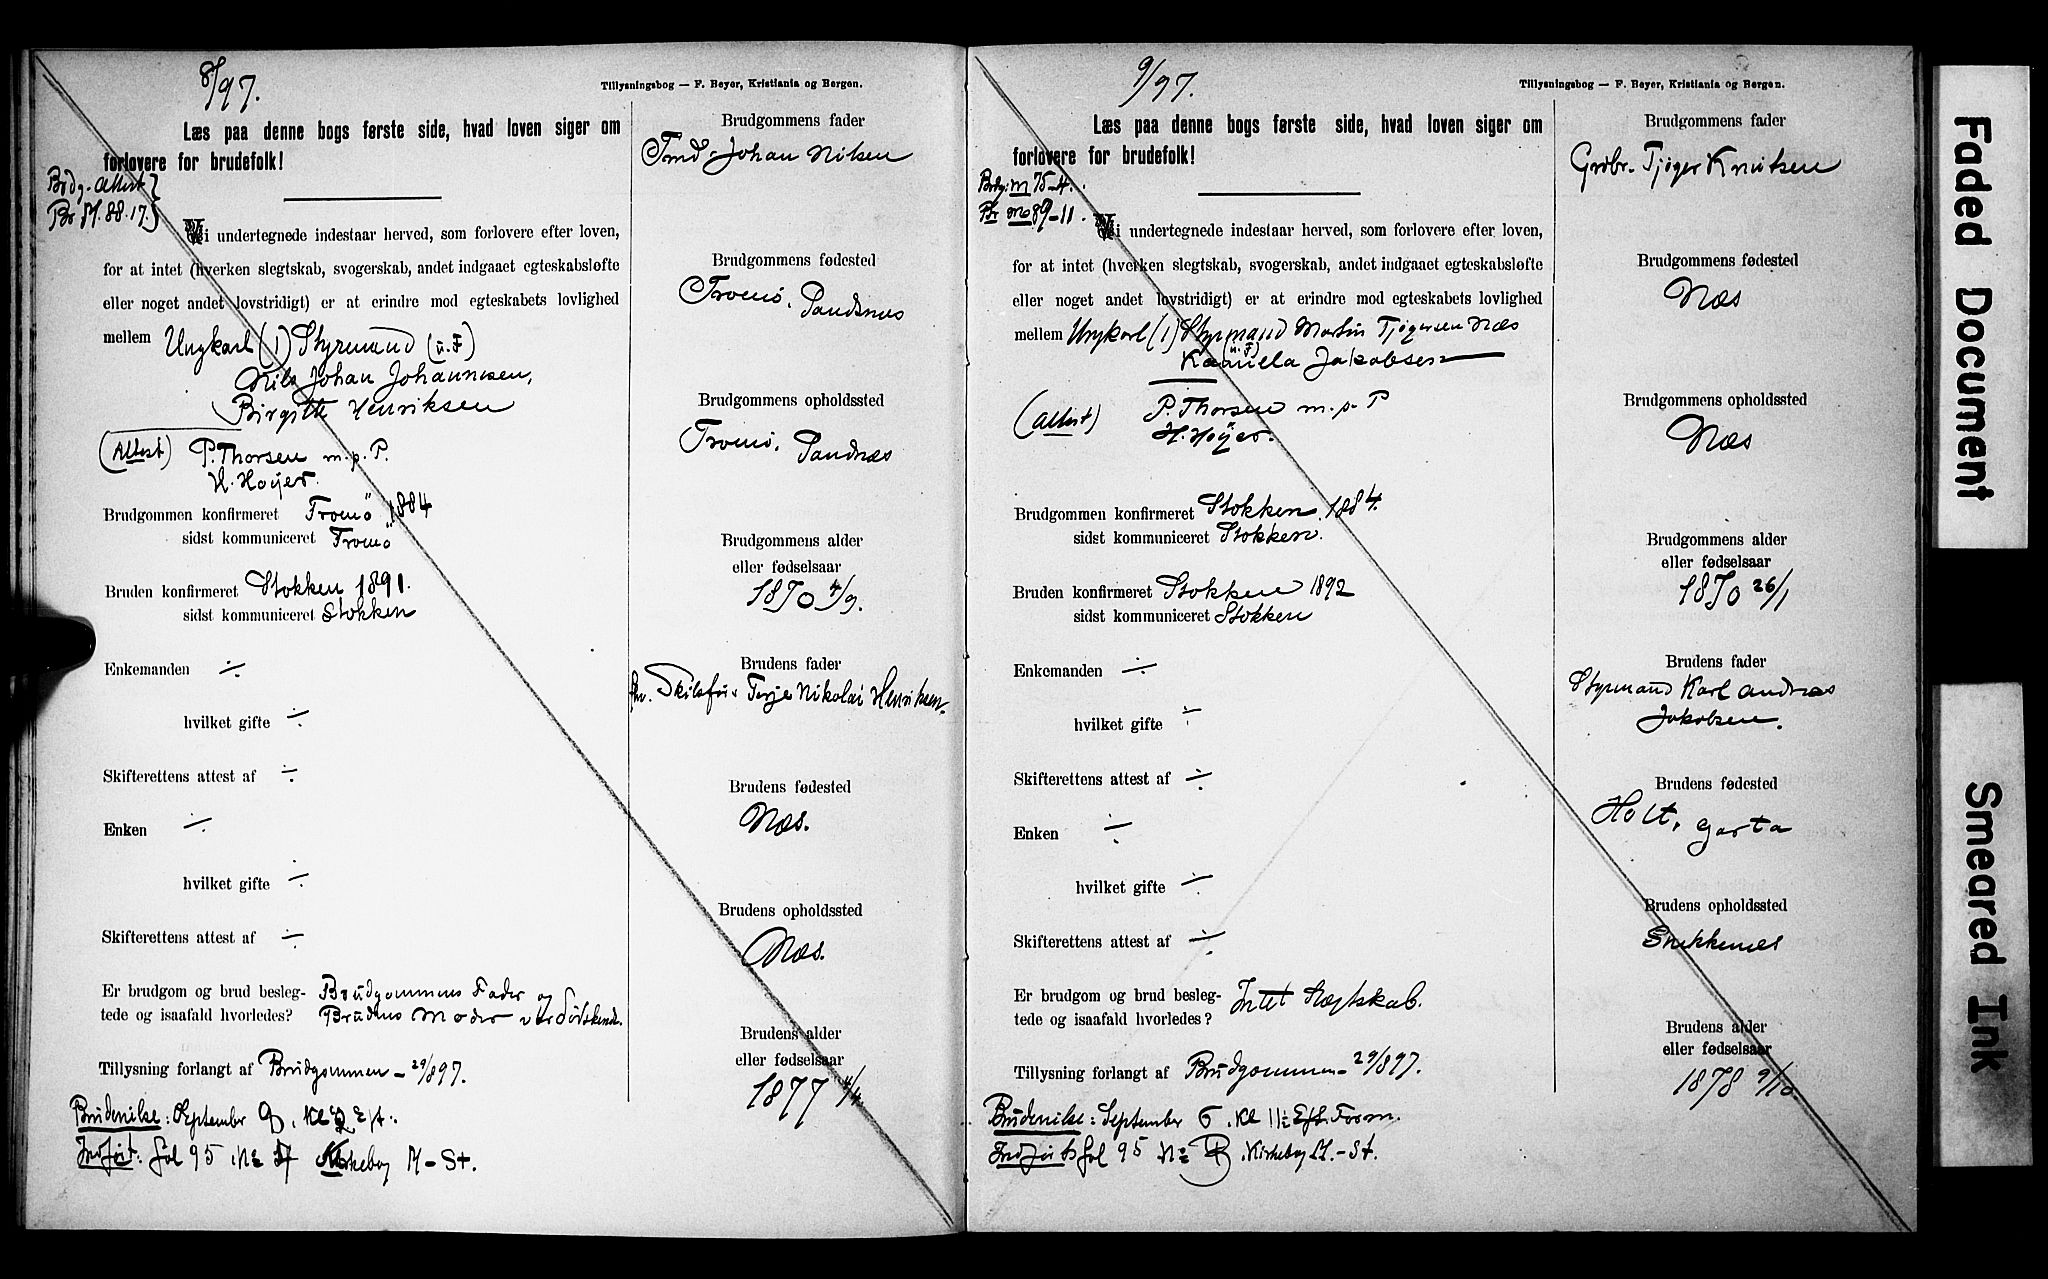 8/97.
Tillysningsbog — F. Beyer, Kristiania og Bergen.
Læs paa denne bogs første side, hvad loven siger om
forlovere for brudefolk!
Brdg. attest
Br M. 88. 17.
Vi undertegnede indestaar herved, som forlovere efter loven,
for at intet (hverken slegtskab, svogerskab, andet indgaaet egteskabsløfte
eller noget andet lovstridigt) er at erindre mod egteskabets lovlighed
mellem Ungkarl (1) Styrmand (u.F)
Nils Johan Johannesen,
Birgitte Henriksen
(Attest) P. Thorsen m. p. P.
H. Hoÿer.
Brudgommen konfirmeret Tromö 1884
sidst kommuniceret Tromö
Bruden konfirmeret Stokken 1891.
sidst kommuniceret Stokken
Enkemanden ÷
hvilket gifte ÷
Skifterettens attest af ÷
Enken ÷
hvilket gifte ÷
Skifterettens attest af ÷
Er brudgom og brud besleg- Brudgommens Fader og
tede og isaafald hvorledes? Brudens Moder var Södskende.
Tillysning forlangt af Brudgommen - 29/897.
Brudevielse: September 9. Kl 2 Eft.
Indført: fol 95 No Kirkebog M - St.
Brudgommens fader
Johan Nilsen
Brudgommens fødested
Tromö, Sandnæs
Brudgommens opholdssted
Tromö, Sandnæs
Brudgommens alder
eller fødselsaar
1870 4/9.
Brudens fader
Terje Nikolai Henriksen
Brudens fødested
Næs.
Brudens opholdssted
Næs.
Brudens alder
eller fødselsaar
1877 4/4.
9/97.
Tillysningsbog — F. Beyer, Kristiania og Bergen.
Læs paa denne bogs første side, hvad loven siger om
forlovere for brudefolk!
Brdg: M 75-4.
Br M 89-11.
Vi undertegnede indestaar herved, som forlovere efter loven,
for at intet (hverken slegtskab, svogerskab, andet indgaaet egteskabsløfte
eller noget andet lovstridigt) er at erindre mod egteskabets lovlighed
mellem Ungkarl (1) Styrmand Martin Tjøgersen Næs
(u.F)
Kamilla Jakobsen
(Attest) P. Thorsen m. p. P
H. Hoÿer.
Brudgommen konfirmeret Stokken 1884.
sidst kommuniceret Stokken.
Bruden konfirmeret Stokken 1892
sidst kommuniceret Stokken
Enkemanden ÷
hvilket gifte ÷
Skifterettens attest af ÷
Enken ÷
hvilket gifte ÷
Skifterettens attest af ÷
Er brudgom og brud besleg- Intet Slegtskab.
tede og isaafald hvorledes?
Tillysning forlangt af Brudgommen - 29/897.
Brudevielse: September 6. Kl 11 Form.
Indført fol 95 No Kirkebog M. - St.
Brudgommens fader
Grdbr. Tjøger Knutsen
Brudgommens fødested
Næs
Brudgommens opholdssted
Næs
Brudgommens alder
eller fødselsaar
1870 26/1
Brudens fader
Styrmand Karl Andreas
Jakobsen.
Brudens fødested
Holt, Garta
Brudens opholdssted
Snekkenes
Brudens alder
eller fødselsaar
1878 9/10
Faded Document
Smeared Ink